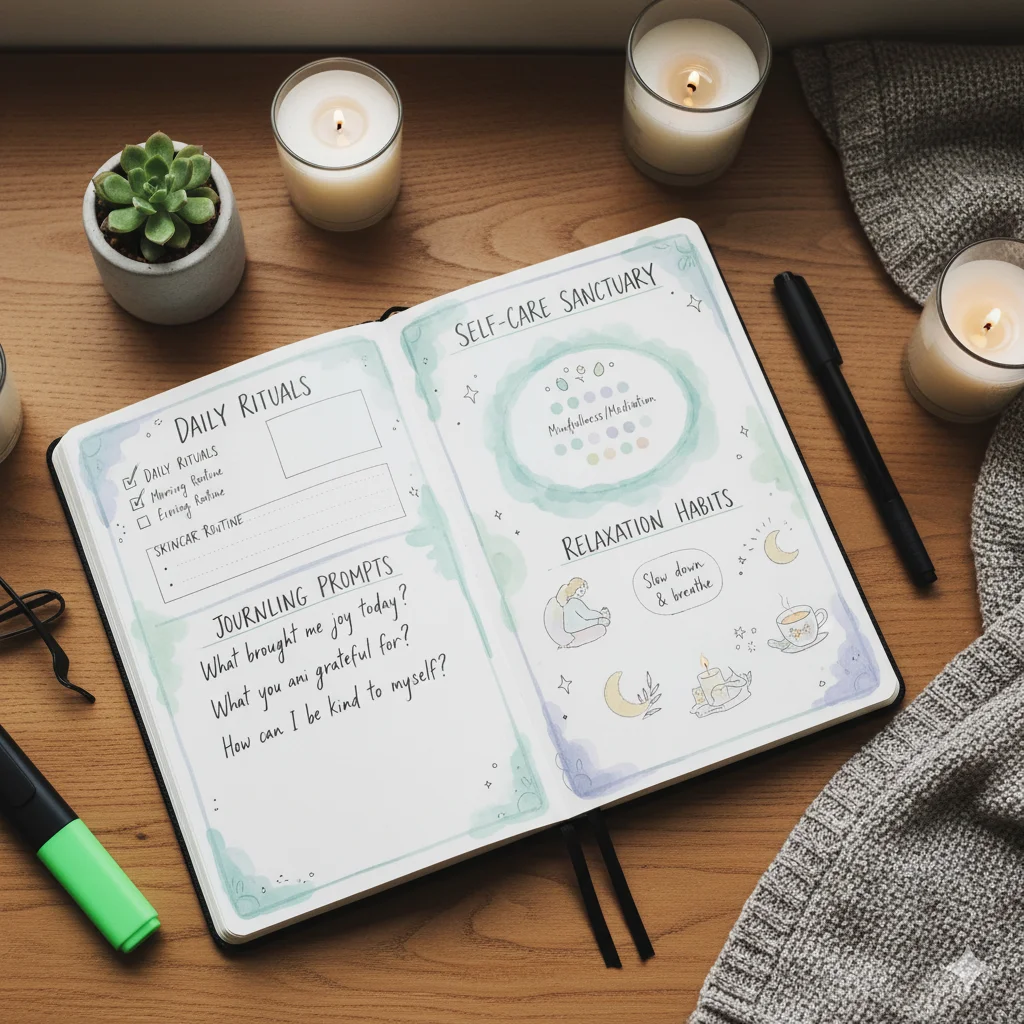 DAILY RITUALS
DAILY RITUALS
Morning Routine
Evning Routine
SKINCAR ROUTINE
JOURNLING PROMPTS
What brought me joy today?
What you ani grateful for?
How can I be kind to myself?
SELF-CARE SANCTUARY
Mindfullness/Madiration
RELAXATION HABITS
Slow down
& breathe